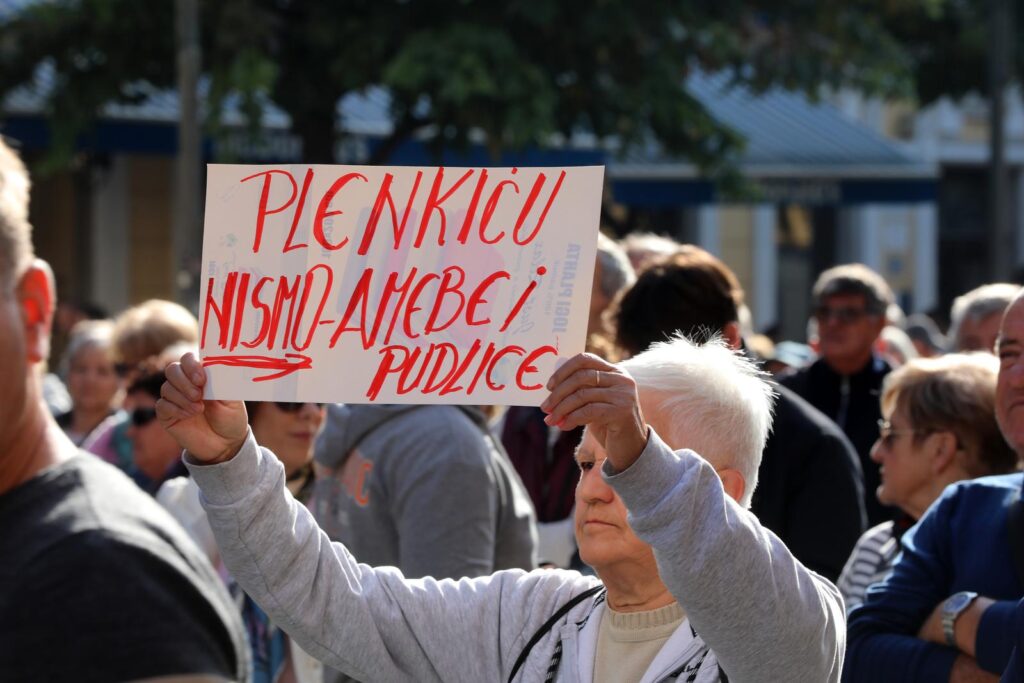 PLENKIĆU
NISMO-AMEBE i
PUDLICE